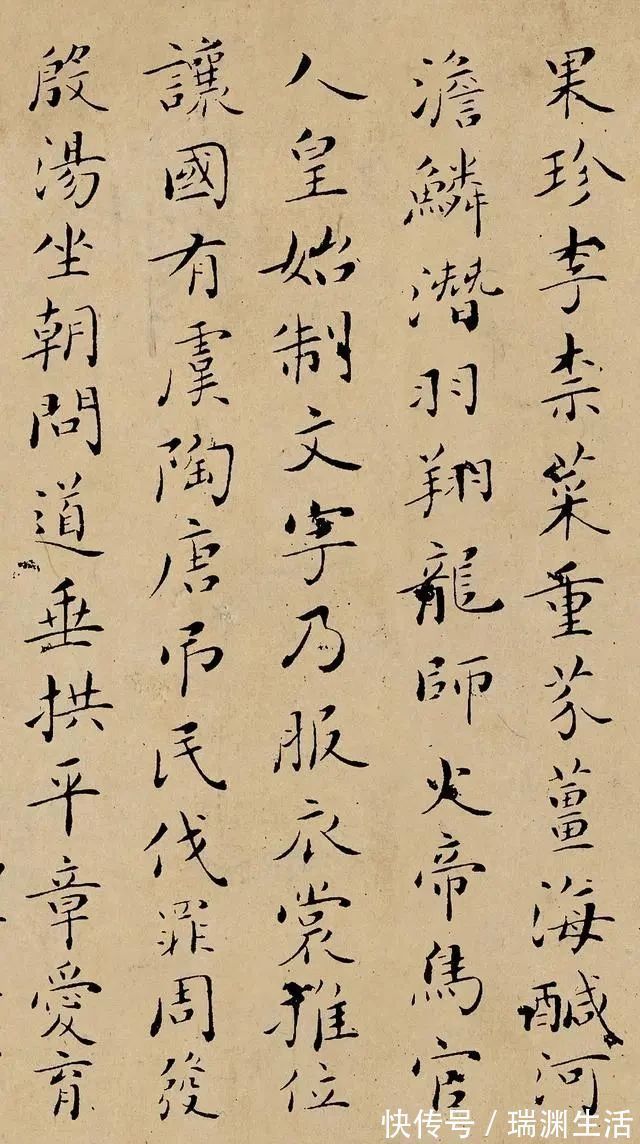 果珍李柰菜重芥薑海醎河
澹鱗潛羽翔龍師火帝鳥官
人皇始制文字乃服衣裳推位
讓國有虞陶唐吊民伐罪周發
殷湯坐朝問道垂拱平章愛育
快传号／瑞渊生活